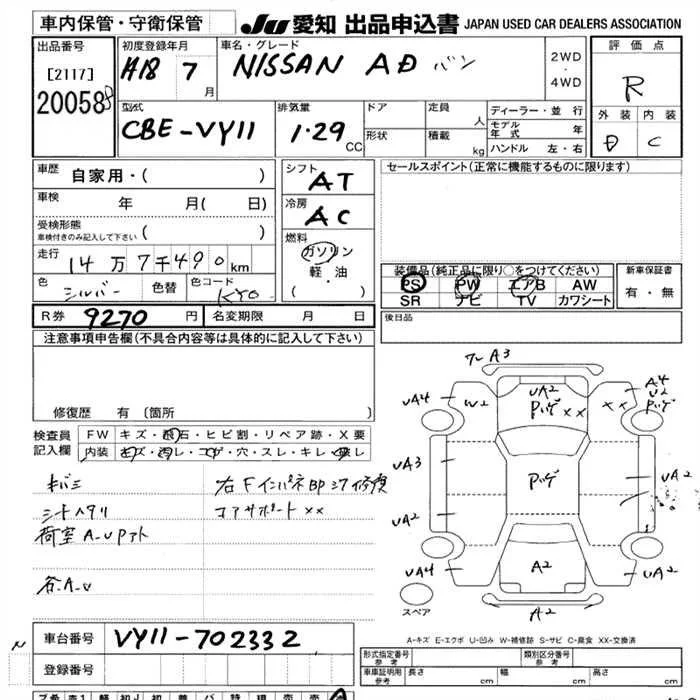 車内保管・守衛保管 JU 愛知 出品申込書 JAPAN USED CAR DEALERS ASSOCIATION
出品番号 初度登録年月 車名・グレード 2WD・4WD 評価点
[2117] H18 7月 NISSAN AD バン R
20058
型式 排気量 ドア 定員 人 ディーラー・並行 外装 内装
CBE-VY11 1.29 CC 形状 積載 kg モデル年式 年 D C
ハンドル 左・右
車歴 自家用・( ) シフト AT セールスポイント(正常に機能するものに限ります)
車検 年 月( 日) 冷房 AC
受検形態 車検付きのみ記入して下さい( )
燃料 ガソリン 軽・油 ( ・ )
走行 14万7千490km
装備品(純正品に限り○をつけてください) 新車保証書
色 シルバー 色替 色コード KY0
PS PW エアB AW 有・無
SR ナビ TV カワシート
R券 9270円 名変期限 月 日 後日品
注意事項申告欄(不具合内容等は具体的に記入して下さい)
ワレ A3
UA4 W2 UA2 A4
U2
Pハゲ XX XX Pハゲ
修復歴 有 〔箇所
検査員記入欄 FW キズ・飛石・ヒビ割・リペア跡・X要
内装 キズ・汚レ・コゲ・穴・スレ・キレ・無し
UA3 Pハゲ UA2
キバミ 右Fインパネ BP シワ修復
シートヘタリ コアサポートXX
UA2
荷室A.UPアト
UA4 A2 UA2
各A.U
スペア A2
A-キズ E-エクボ U-凹み W-補修跡 S-サビ C-腐食 XX-交換済
N 車台番号 VY11-702332
形式指定番号 参考 類別区分番号 参考
登録番号 車庫証明用 参考 長さ cm 幅 cm 高さ cm